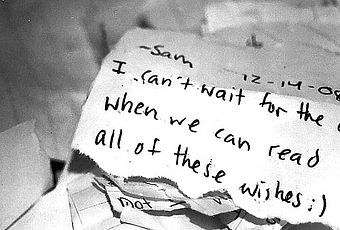 -Sam
12-14-08
I can't wait for the
when we can read
all of these wishes :)
mot